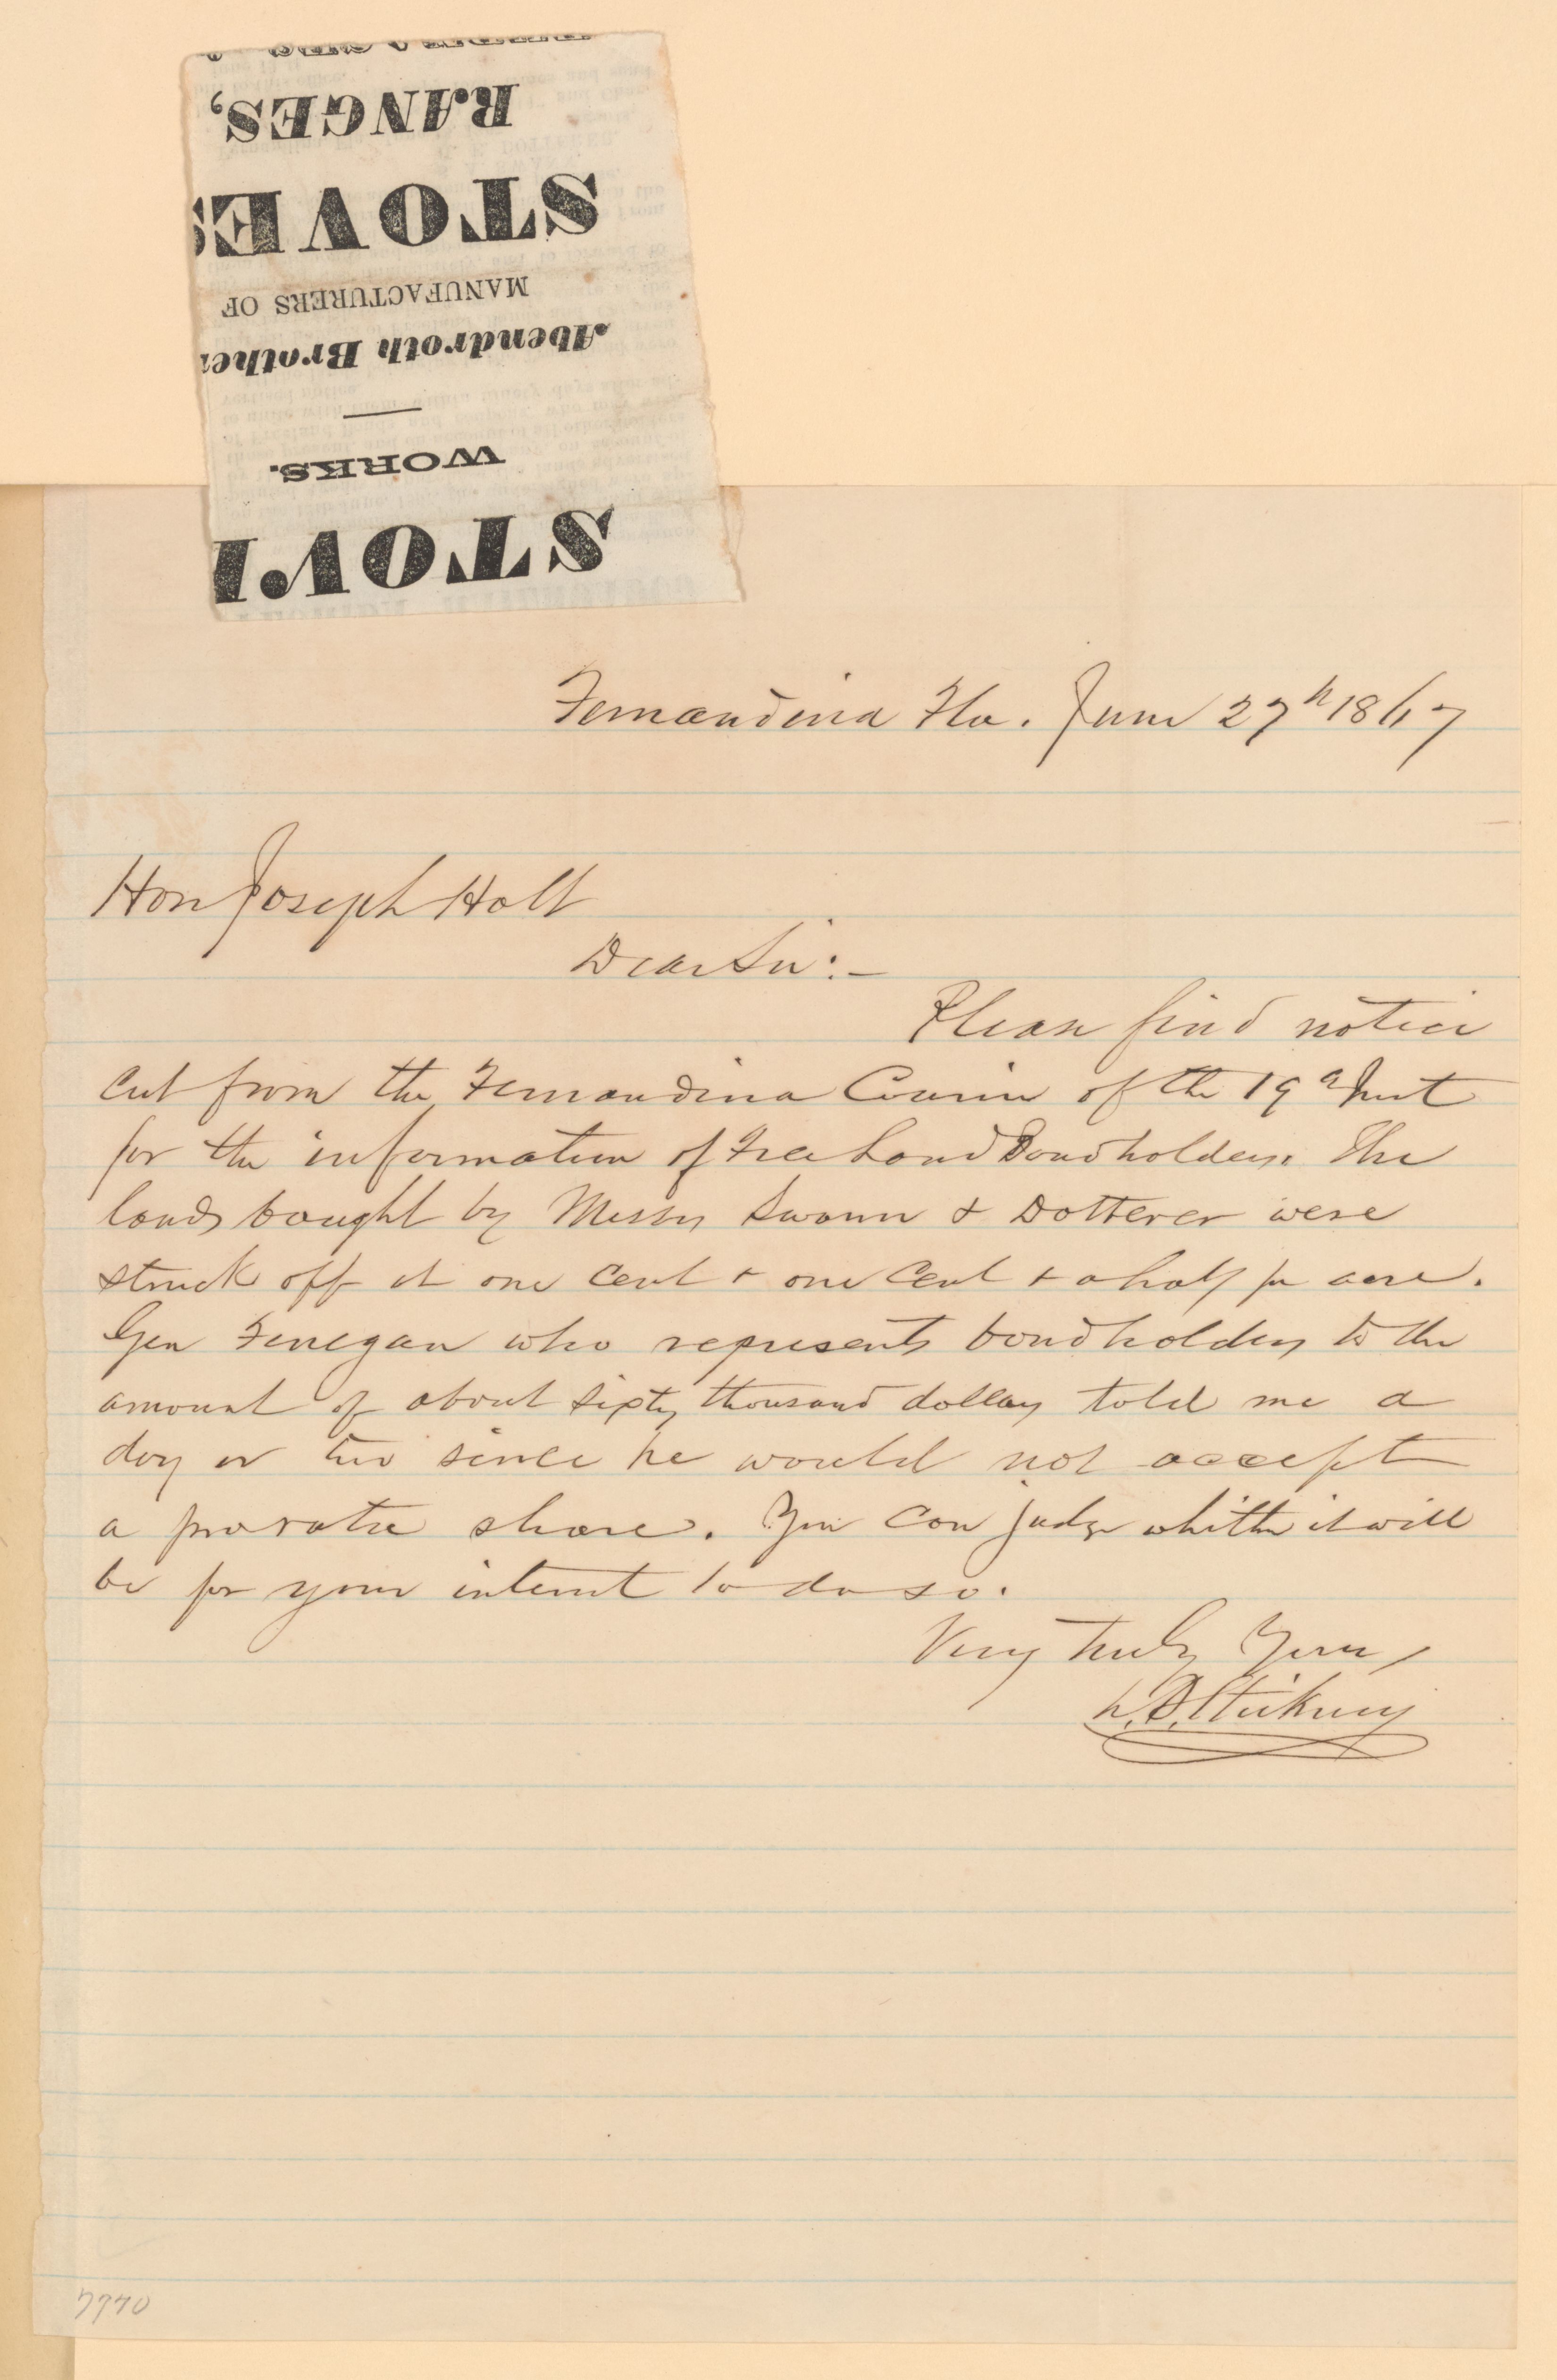 STOVE
WORKS.
Abendroth Brother
MANUFACTURERS OF
STOVES
RANGES,
Fernandina Fla. June 27th 1867
Hon Joseph Holt
Dear Sir:—
Please find notice
cut from the Fernandina Courier of the 19th Inst
for the information of Free Land Bondholders. The
lands bought by Messrs Swann & Dotterer were
struck off at one cent & one cent & a half per acre.
Gen Finegan who represents bondholders to the
amount of about sixty thousand dollars told me a
day or two since he would not accept
a prorata share. You can judge whether it will
be for your interest to do so.
Very truly Yours,
L.D. Stickney
7770